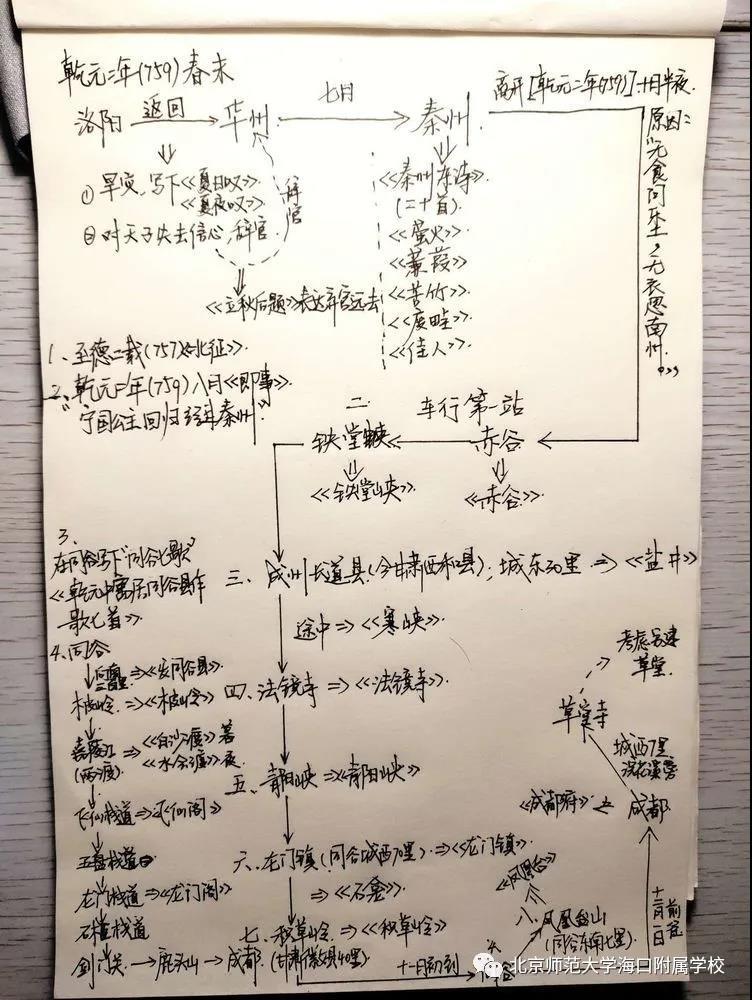 乾元二年(759)春末
洛阳 返回 华州 七月 秦州 离开[乾元二年(759)]十月半夜
① 旱灾,写下《夏日叹》
《夏夜叹》
② 对天子失去信心,辞官
辞官
《立秋后题》表达弃官远去
《秦州杂诗》
(二十首)
《萤火》
《蒹葭》
《苦竹》
《佳人》
原因:
"无食问乐土,无衣思南州。"
1、至德二载(757)《北征》
2、乾元二年(759)八月《即事》
"宁国公主回归经秦州"
二 车行第一站
铁堂峡 赤谷
《铁堂峡》 《赤谷》
3、
在同谷写下"同谷七歌"
《乾元中寓居同谷县作
歌七首》
三、成州长道县(今甘肃西和县);城东30里 ⇒《盐井》
途中⇒《寒峡》
四、法镜寺⇒《法镜寺》
五、青阳峡⇒《青阳峡》
六、龙门镇(同谷城西70里)⇒《龙门镇》
⇒《石龛》
七、积草岭⇒《积草岭》
十一月初到
八、凤凰台山
(同谷东南七里)
《凤凰台》
4、同谷
⇒《发同谷县》
木皮岭⇒《木皮岭》
嘉陵江⇒《白沙渡》
(两渡) 《水会渡》 夜
飞仙栈道⇒《飞仙阁》
五盘栈道
龙门栈道⇒《龙门阁》
石柜栈道
剑门关→鹿头山→成都
十二月一日前后
成都
《成都府》
城西7里
浣花溪旁
草堂寺
考虑另建
草堂
北京师范大学海口附属学校